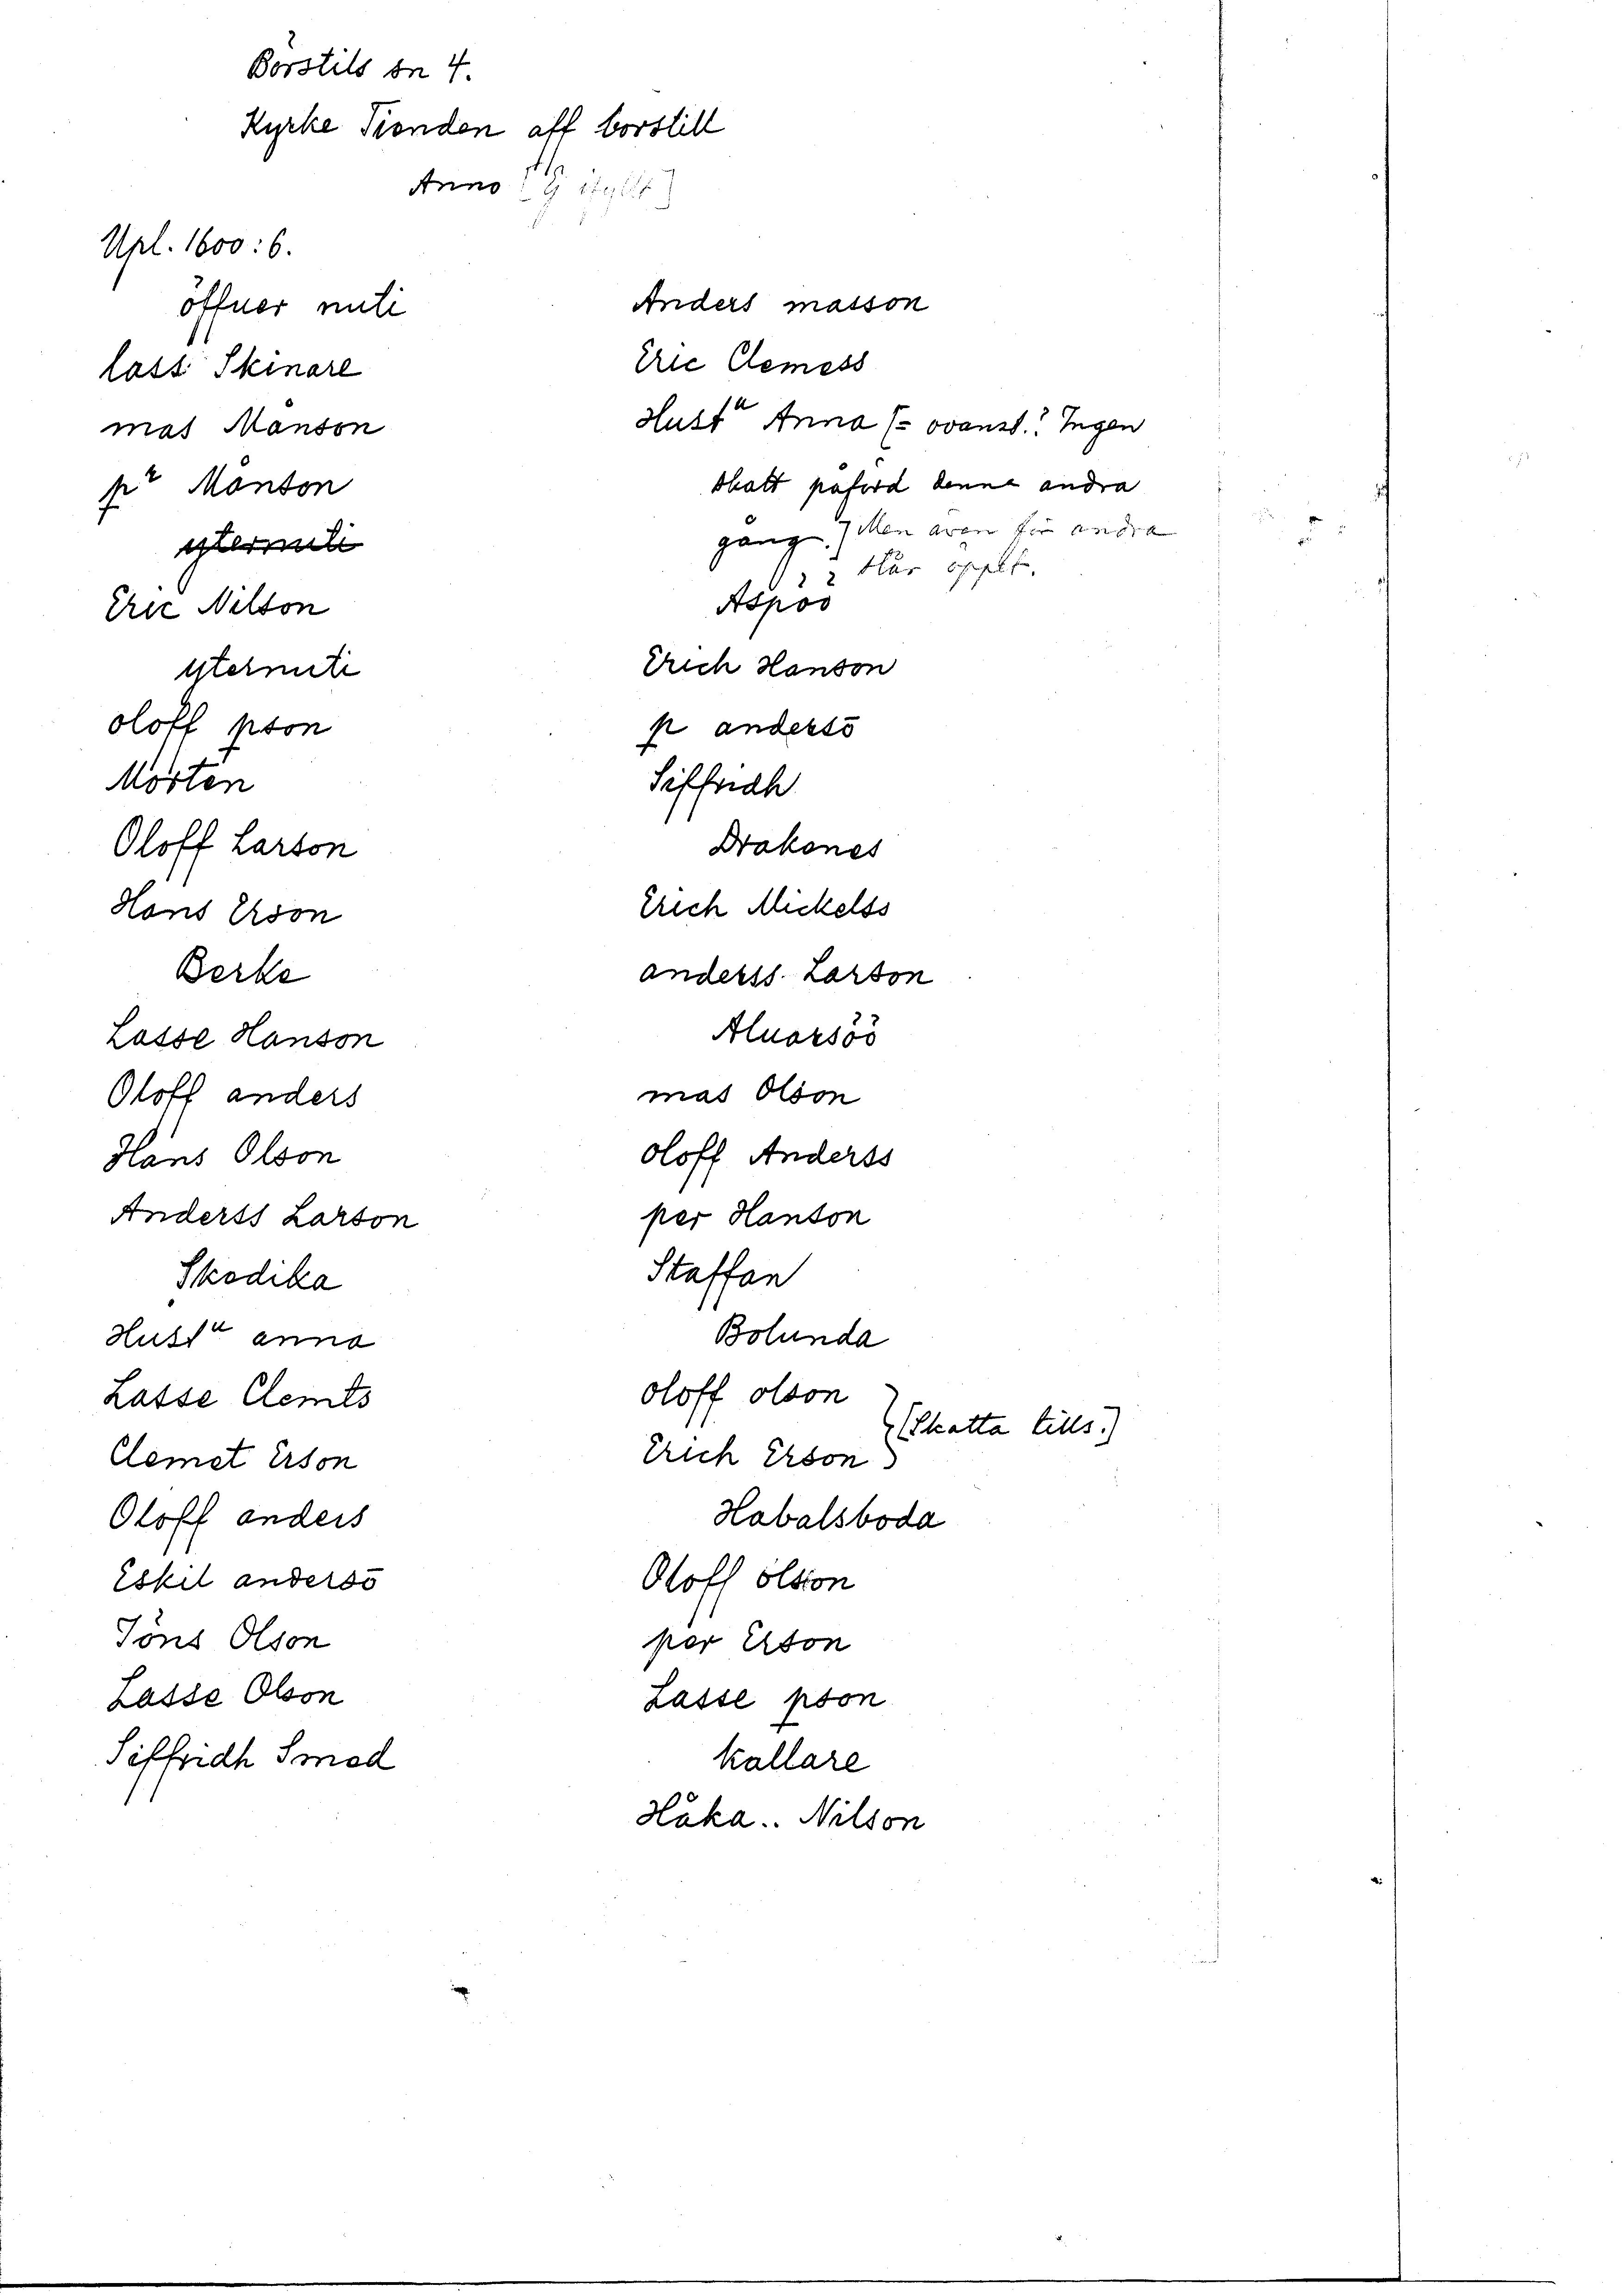 Börstils sn 4.
Kyrke Tienden aff borstill
Anno
Upl. 1600:6.
öffuer nuti
lass Skinare
mas Månson
pr Månson
ytermuti
Eric Nilson
yternuti
oloff pson
Mårten
Oloff Larson
Hans Erson
Berke
Lasse Hanson
Oloff anders
Hans Olson
Anderss Larson
Skodika
Hustu anna
Lasse Clemts
Clemet Erson
Oloff anders
Eskil anderso
Jöns Olson
Lasse Olson
Siffridh Smed
Anders masson
Eric Clemess
Hustu Anna (= ovanst.? Ingen
skatt påförd denna andra
gång.) Men även för andra
är öppet.
Aspöö
Erich Hanson
p anderso
Siffridh
Drakenes
Erich Mickelss
anderss Larson
Aluarsöö
mas Olson
oloff Anderss
per Hanson
Staffan
Bolunda
oloff olson
[Skatta tills.]
Erich Erson
Habalsboda
Oloff olson
per Erson
Lasse pson
kallare
Håka.. Nilson